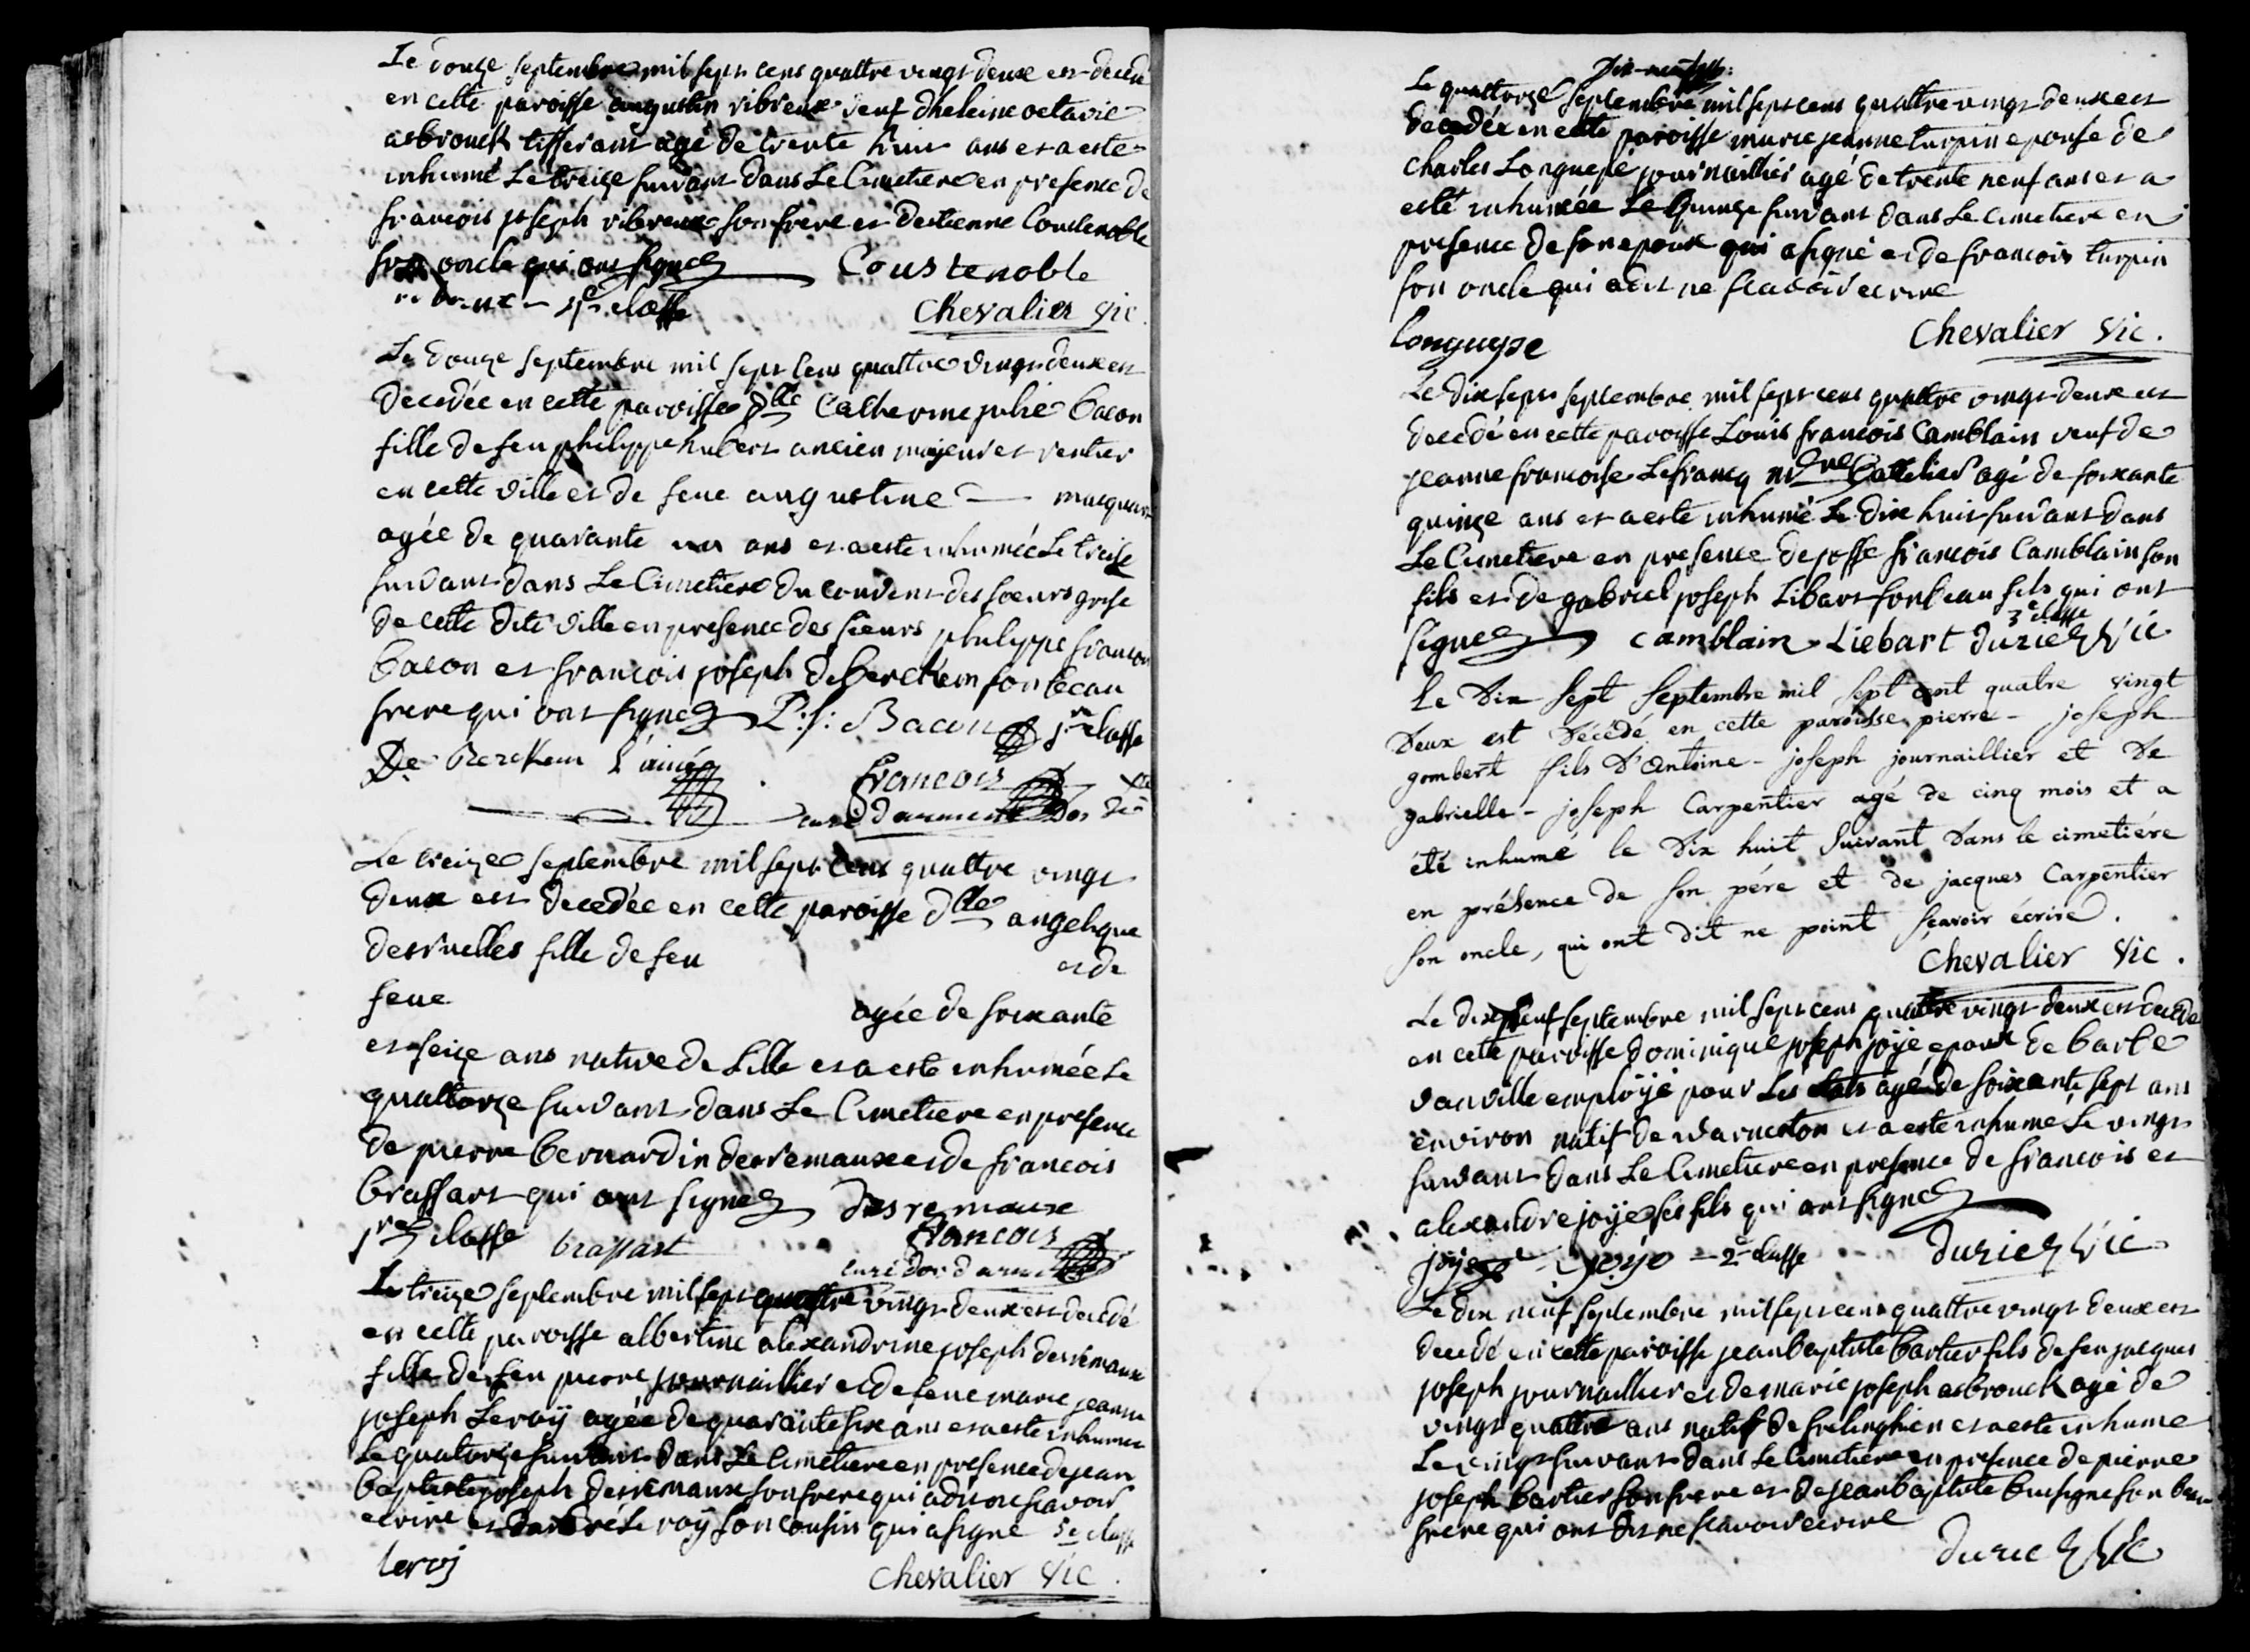 Le douze septembre mil sept cens quattre vingt deux est decedé
en cette paroisse augustin vibreux veuf dheleine octavie
asbrouck tisserant agé de trente huit ans et a este
inhumé Le treize suivant dans Le Cimetiere en presence de
francois joseph vibreux son frere et destienne Coustenoble
son oncle qui ont signez Coustenoble
classe Chevalier Vic.
Le douze septembre mil sept cens quattre vingt deux est
Decedée en cette paroisse dlle Catherine julie bacon
fille de feu philippe hubert ancien mayeur et rentier
en cette ville et de feue augustine macquart
agée de quarante un ans et a este inhumée Le treise
suivant dans Le Cimetiere du couvent des soeurs grise
de cette dite ville en presence des sieurs philippe francois
bacon et francois joseph deberckem son beau
frere qui ont signez P: f: Bacon 1re classe
De Berckem L'ainé
francois
curé darment
Le treize septembre mil sept cens quattre vingt
deux est decedée en cette paroisse dlle angelique
desruelles fille de feu et de
feue agée de soixante
et seize ans native de Lille et a este inhumée Le
quattorze suivant dans Le Cimetiere en presence
de pierre bernardin desremaux et de francois
brassart qui ont signez desremaux
1re classe brassart francois
curé dor darm
Le treize septembre mil sept quattre vingt deux est decedé
en cette paroisse albertine alexandrine joseph desremaux
fille de feu pierre journaillier et de feue marie jeanne
joseph Leroÿ agée de quarante six ans et a este inhumée
Le quatorze suivant dans Le Cimetiere en presence de jean
baptiste joseph desremaux son frere qui a dit ne scavoir
ecrire et dandré Le roÿ son cousin qui a signé 3e classe
leroj
Chevalier Vic.
dix-neuf
Le quattorze septembre mil sept cens quattre vingt deux est
decedée en cette paroisse marie jeanne turpin epouse de
Charles Longuepé journaillier agé de trente neuf ans et a
esté inhumée Le quinze suivant dans Le cimetiere en
presence de son epoux qui a signé et de francois turpin
son oncle qui a dit ne scavoir ecrire
longuepe Chevalier Vic.
Le dix sept septembre mil sept cens quattre vingt deux est
decedé en cette paroisse Louis francois Camblain veuf de
jeanne francoise Lefrancq battelier agé de soixante
quinze ans et a este inhumé Le dix huit suivant dans
Le Cimetiere en presence de josse francois Camblain son
fils et de gabriel joseph Libart son beau fils qui ont
3e classe
signez camblain Liebart duriez Vic
Le dix sept septembre mil sept cent quatre vingt
deux est décédé en cette paroisse, pierre - joseph
gombert fils d'Antoine - joseph journaillier et de
gabrielle - joseph Carpentier agé de cinq mois et a
été inhume le dix huit suivant dans le cimetiére
en présence de son pére et de jacques Carpentier
son oncle, qui ont dit ne point sçavoir écrire.
Chevalier Vic.
Le dix neuf septembre mil sept cens quattre vingt deux est decede
en cette paroisse dominique joseph joÿe epoux de barbe
vanville emploÿé pour Les etats agé de soixante sept ans
environ natif de warneton et a este inhumé Le vingt
suivant dans Le Cimetiere en presence de francois et
alexandre joÿe ses fils qui ont signez
joÿe joye - 2e classe duriez Vic
Le dix neuf septembre mil sept cens quattre vingt deux est
decedé en cette paroisse jean baptiste bartier fils de feu jacques
joseph journaillier et de marie joseph asbrouck agé de
vingt quattre ans natif de frelinghien et a este inhume
Le vingt suivant dans Le Cimetiere en presence de pierre
joseph bartier son frere et de jean baptiste buisigne son beau
frere qui ont dit ne scavoir ecrire
duriez Vic